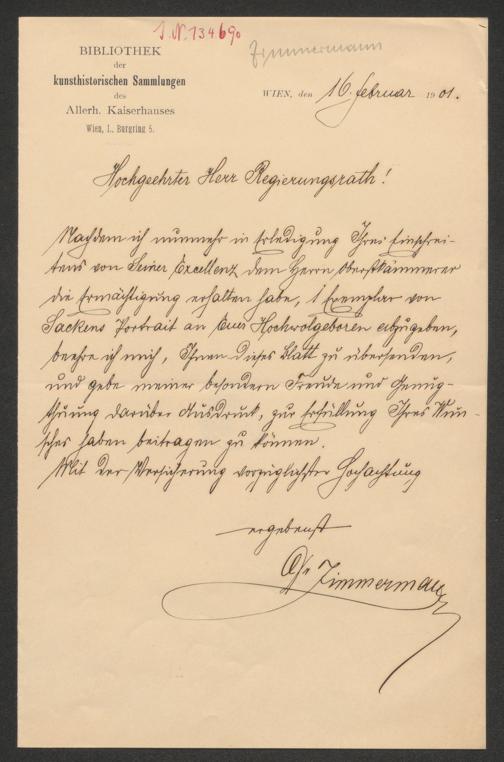 I.N. 134690
Zimmermann
BIBLIOTHEK
der
kunsthistorischen Sammlungen
des
Allerh. Kaiserhauses
Wien, I., Burgring 5.
WIEN, den 16. Februar 1901.
Hochgeehrter Herr Regierungsrath!
Nachdem ich nunmehr in Erledigung Ihres Einschrei-
tens von Seiner Excellenz dem Herrn Oberstkämmerer
die Ermächtigung erhalten habe, 1 Exemplar von
Sackens Portrait an Euer Hochwolgeboren abzugeben,
beehre ich mich, Ihnen dieses Blatt zu übersenden,
und gebe meiner besondern Freude und Genug-
thuung darüber Ausdruck, zur Erfüllung Ihres Wun-
sches haben beitragen zu können.
Mit der Versicherung vorzüglichster Hochachtung
ergebenst
Zimmerman